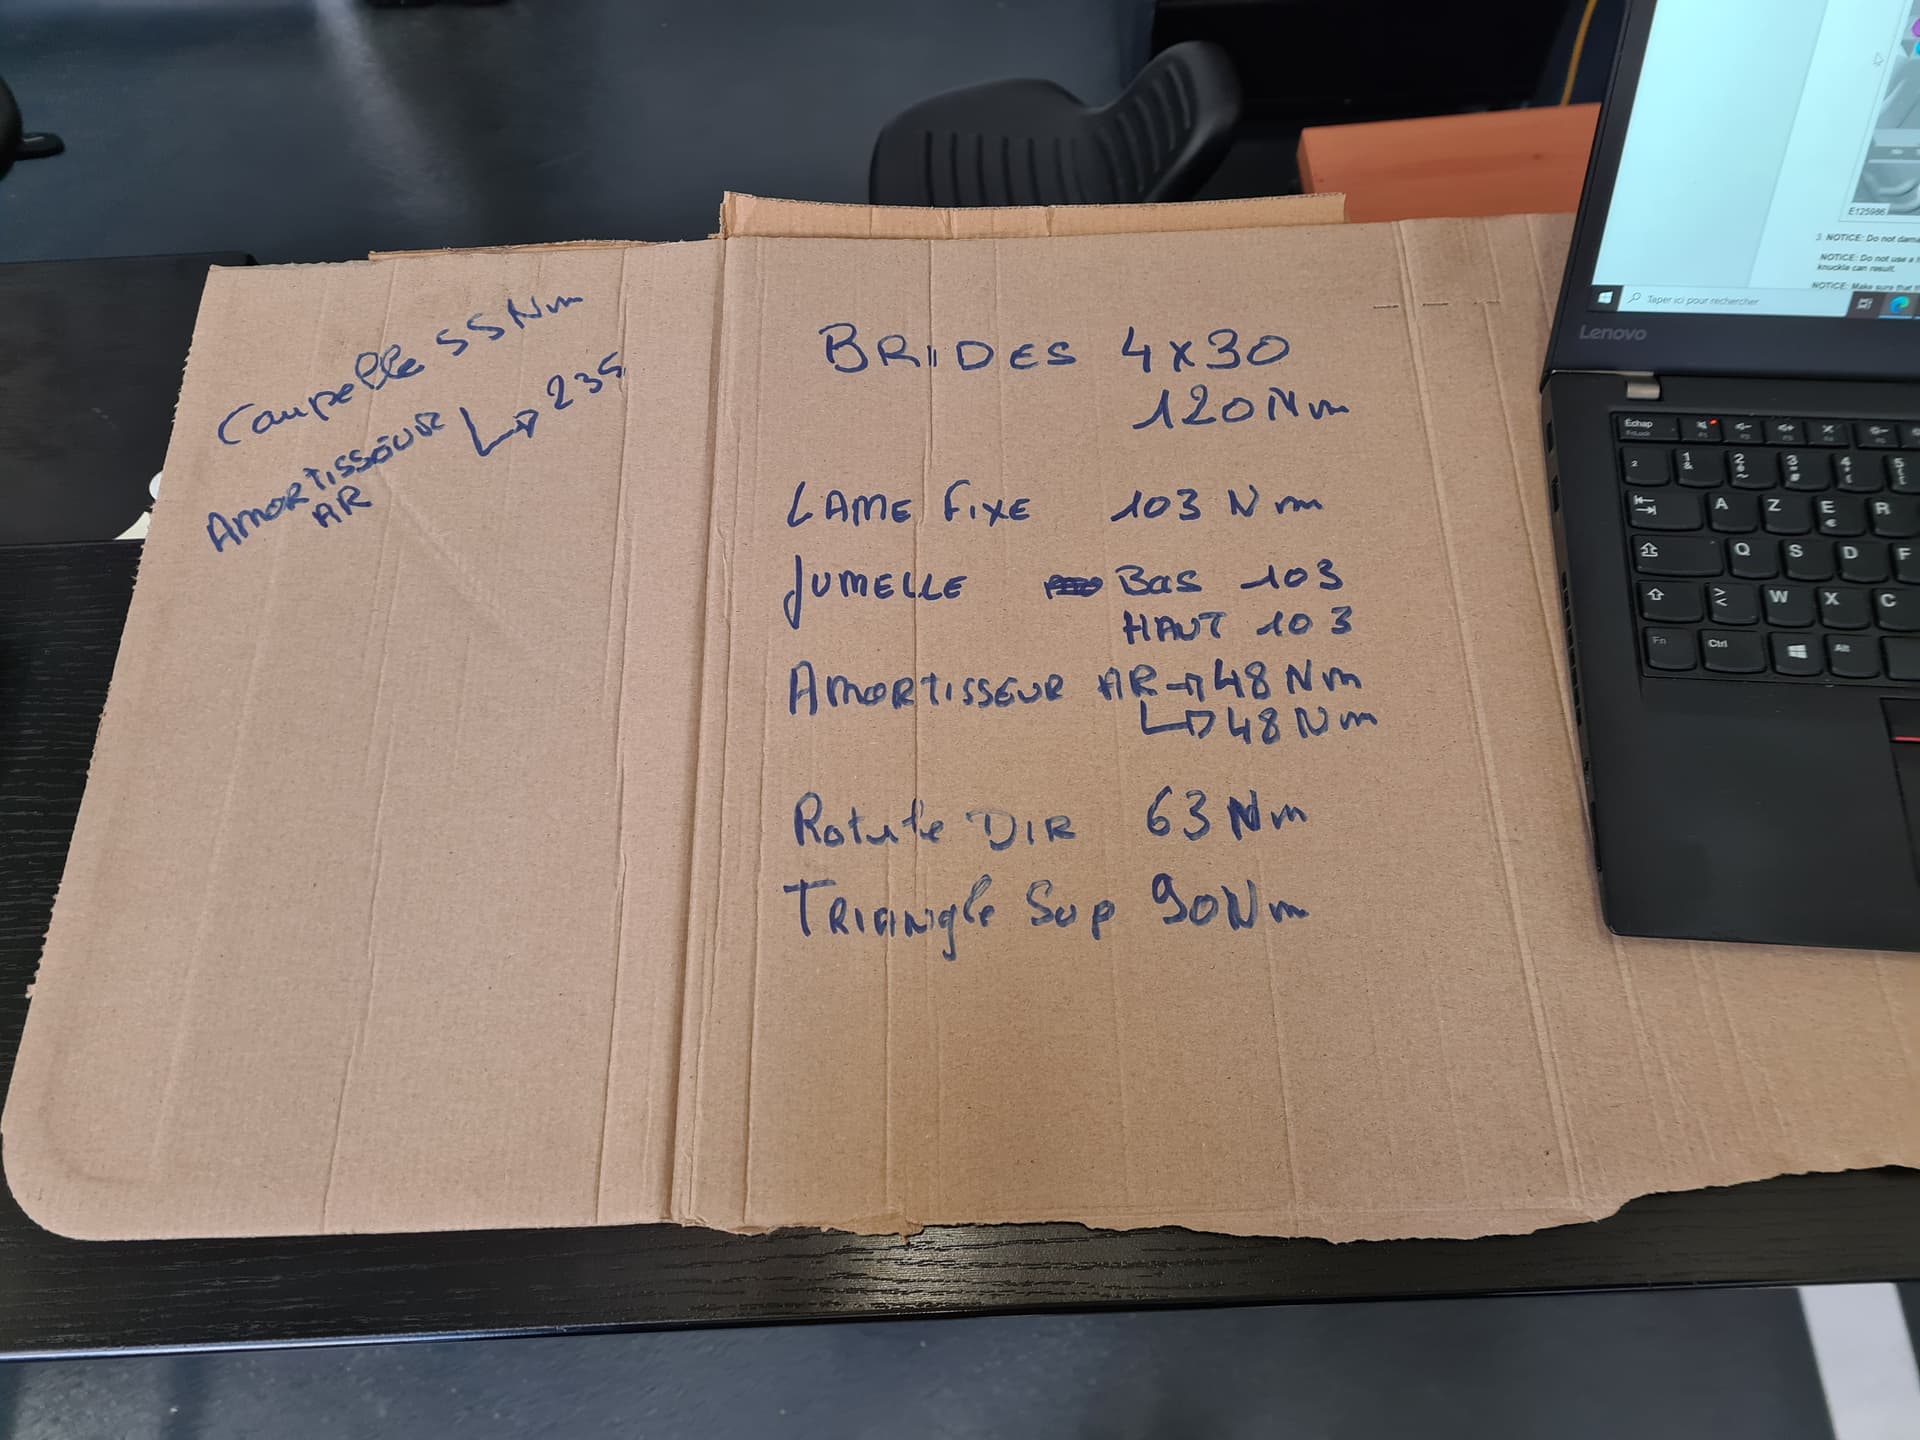 Coupelle 55 Nm
AMORTISSEUR
AR
BRIDES 4x30
120 Nm
LAME FIXE 103 Nm
JUMELLE BAS 103
HAUT 103
AMORTISSEUR AR → 48 Nm
↳ 48 Nm
Rotule DIR 63 Nm
TRIANGle Sup 90 Nm
E125986
NOTICE: Do not dama
NOTICE: Do not use a
knuckle can result.
NOTICE: Make sure that
Taper ici pour rechercher
Lenovo
Echap
A Z E R
Q S D F
W X C
Fn Ctrl Alt